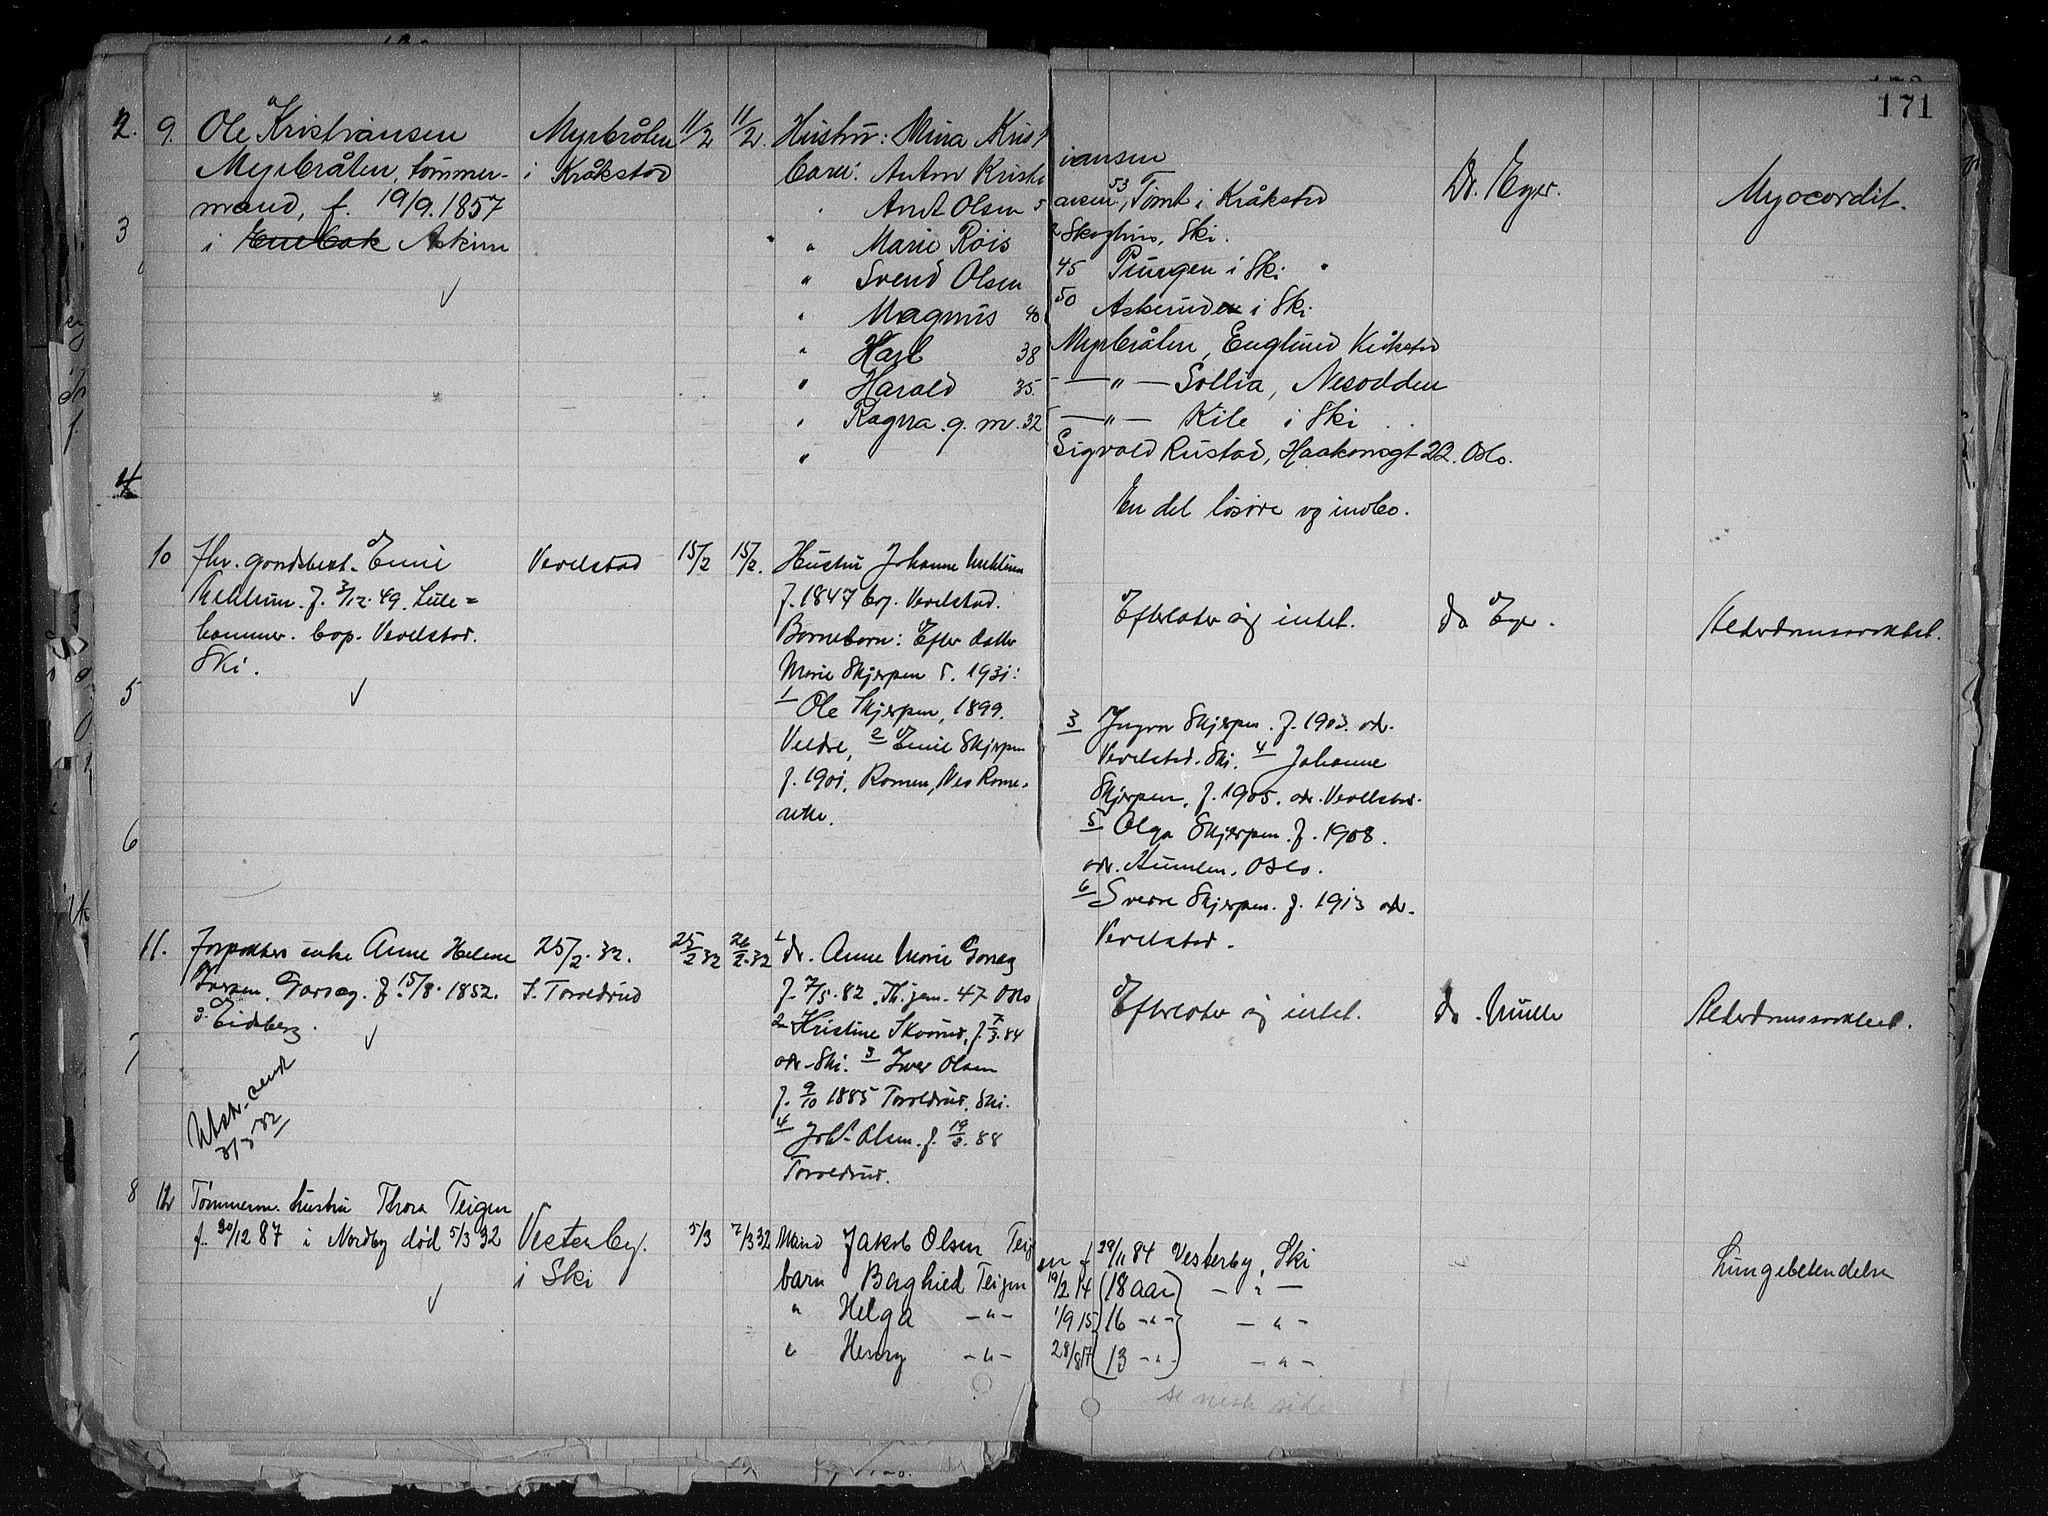 171
2. 9. Ole Kristiansen Myrbråten 11/2 11/2. Hustru: Mina Kristiansen
Myrbråten, tømmer- i Kråkstad barn: Anton Kristiansen 53, Tomt i Kråkstad Dr. Eger. Myocardit.
mand, f. 19/9. 1857 " Olsen Skoghus, Ski.
3 i Enebak Askim " Marie Röis 45 i Ski
" Svend Olsen 50 Askerud i Ski
" Magnus 40 Myrbråten, Englund Kråkstad
" Karl 38 — " — Sollia, Nesodden
" Harald 35. — " — Kile i Ski
" Ragna g. m. 32 Sigvald Rustad, Haakonsgt 22. Oslo.
"
4 En del løsøre og indbo.
10 fhv. gårdsbest. Emil Vevelstad 15/2 15/2. Hustru Johanne Mehlum
Mehlum. f. 3/12. 49. Lille= f. 1847 boj. Vevelstad. Efterlater sig intet. do Eger. Alderdomssvakhet.
hammer. bop. Vevelstad. Barnebarn: Efter datter
Ski. Marie Skjerpen d. 1931:
5 1 Ole Skjerpen, 1899. 3 Yngvar Skjerpen. f. 1903. adr.
Veldre, 2 Emil Skjerpen Vevelstad. Ski. 4 Johanne
f. 1901, Romen, Nes Rome- Skjerpen, f. 1905. adr. Vevelstad.
rike. 5 Olga Skjerpen. f. 1908.
6 adr. Oslo.
6 Sverre Skjerpen. f. 1913 adr.
Vevelstad.
11. Forpakters enke Anne Helene 25/2. 32. 25/2 32 26/2. 32 1 dr. Anne Marie
f. 15/8. 1852. i Toveldrud f. 7/5. 82. 47 Oslo Efterlater sig intet. do. Mülle Alderdomssvakhet.
i Eidsberg. 2 Kristine f. 7/3. 84
adr. Ski. 3 Iver Olsen
7 Utskr. sendt f. 9/10 1885 Toveldrud, Ski.
3/3 32 4 Joh. Olsen. f. 19/3. 88
Toveldrud.
8 12 Tømmerm. hustru Thora Teigen
f. 30/12 87 i Nordby død 5/3 32 Vesterby. 5/3 7/3 32 Mand Jakob Olsen Teigen f 29/11 84 Vesterby, Ski Lungebetendelse
i Ski barn Borghild Teigen 19/2 14 (18 aar) — " —
" Helga — " — 1/9 15 (16 — " —) — " —
" Henry — " — 28/8 17 (13 — " —) — " —
se neste side